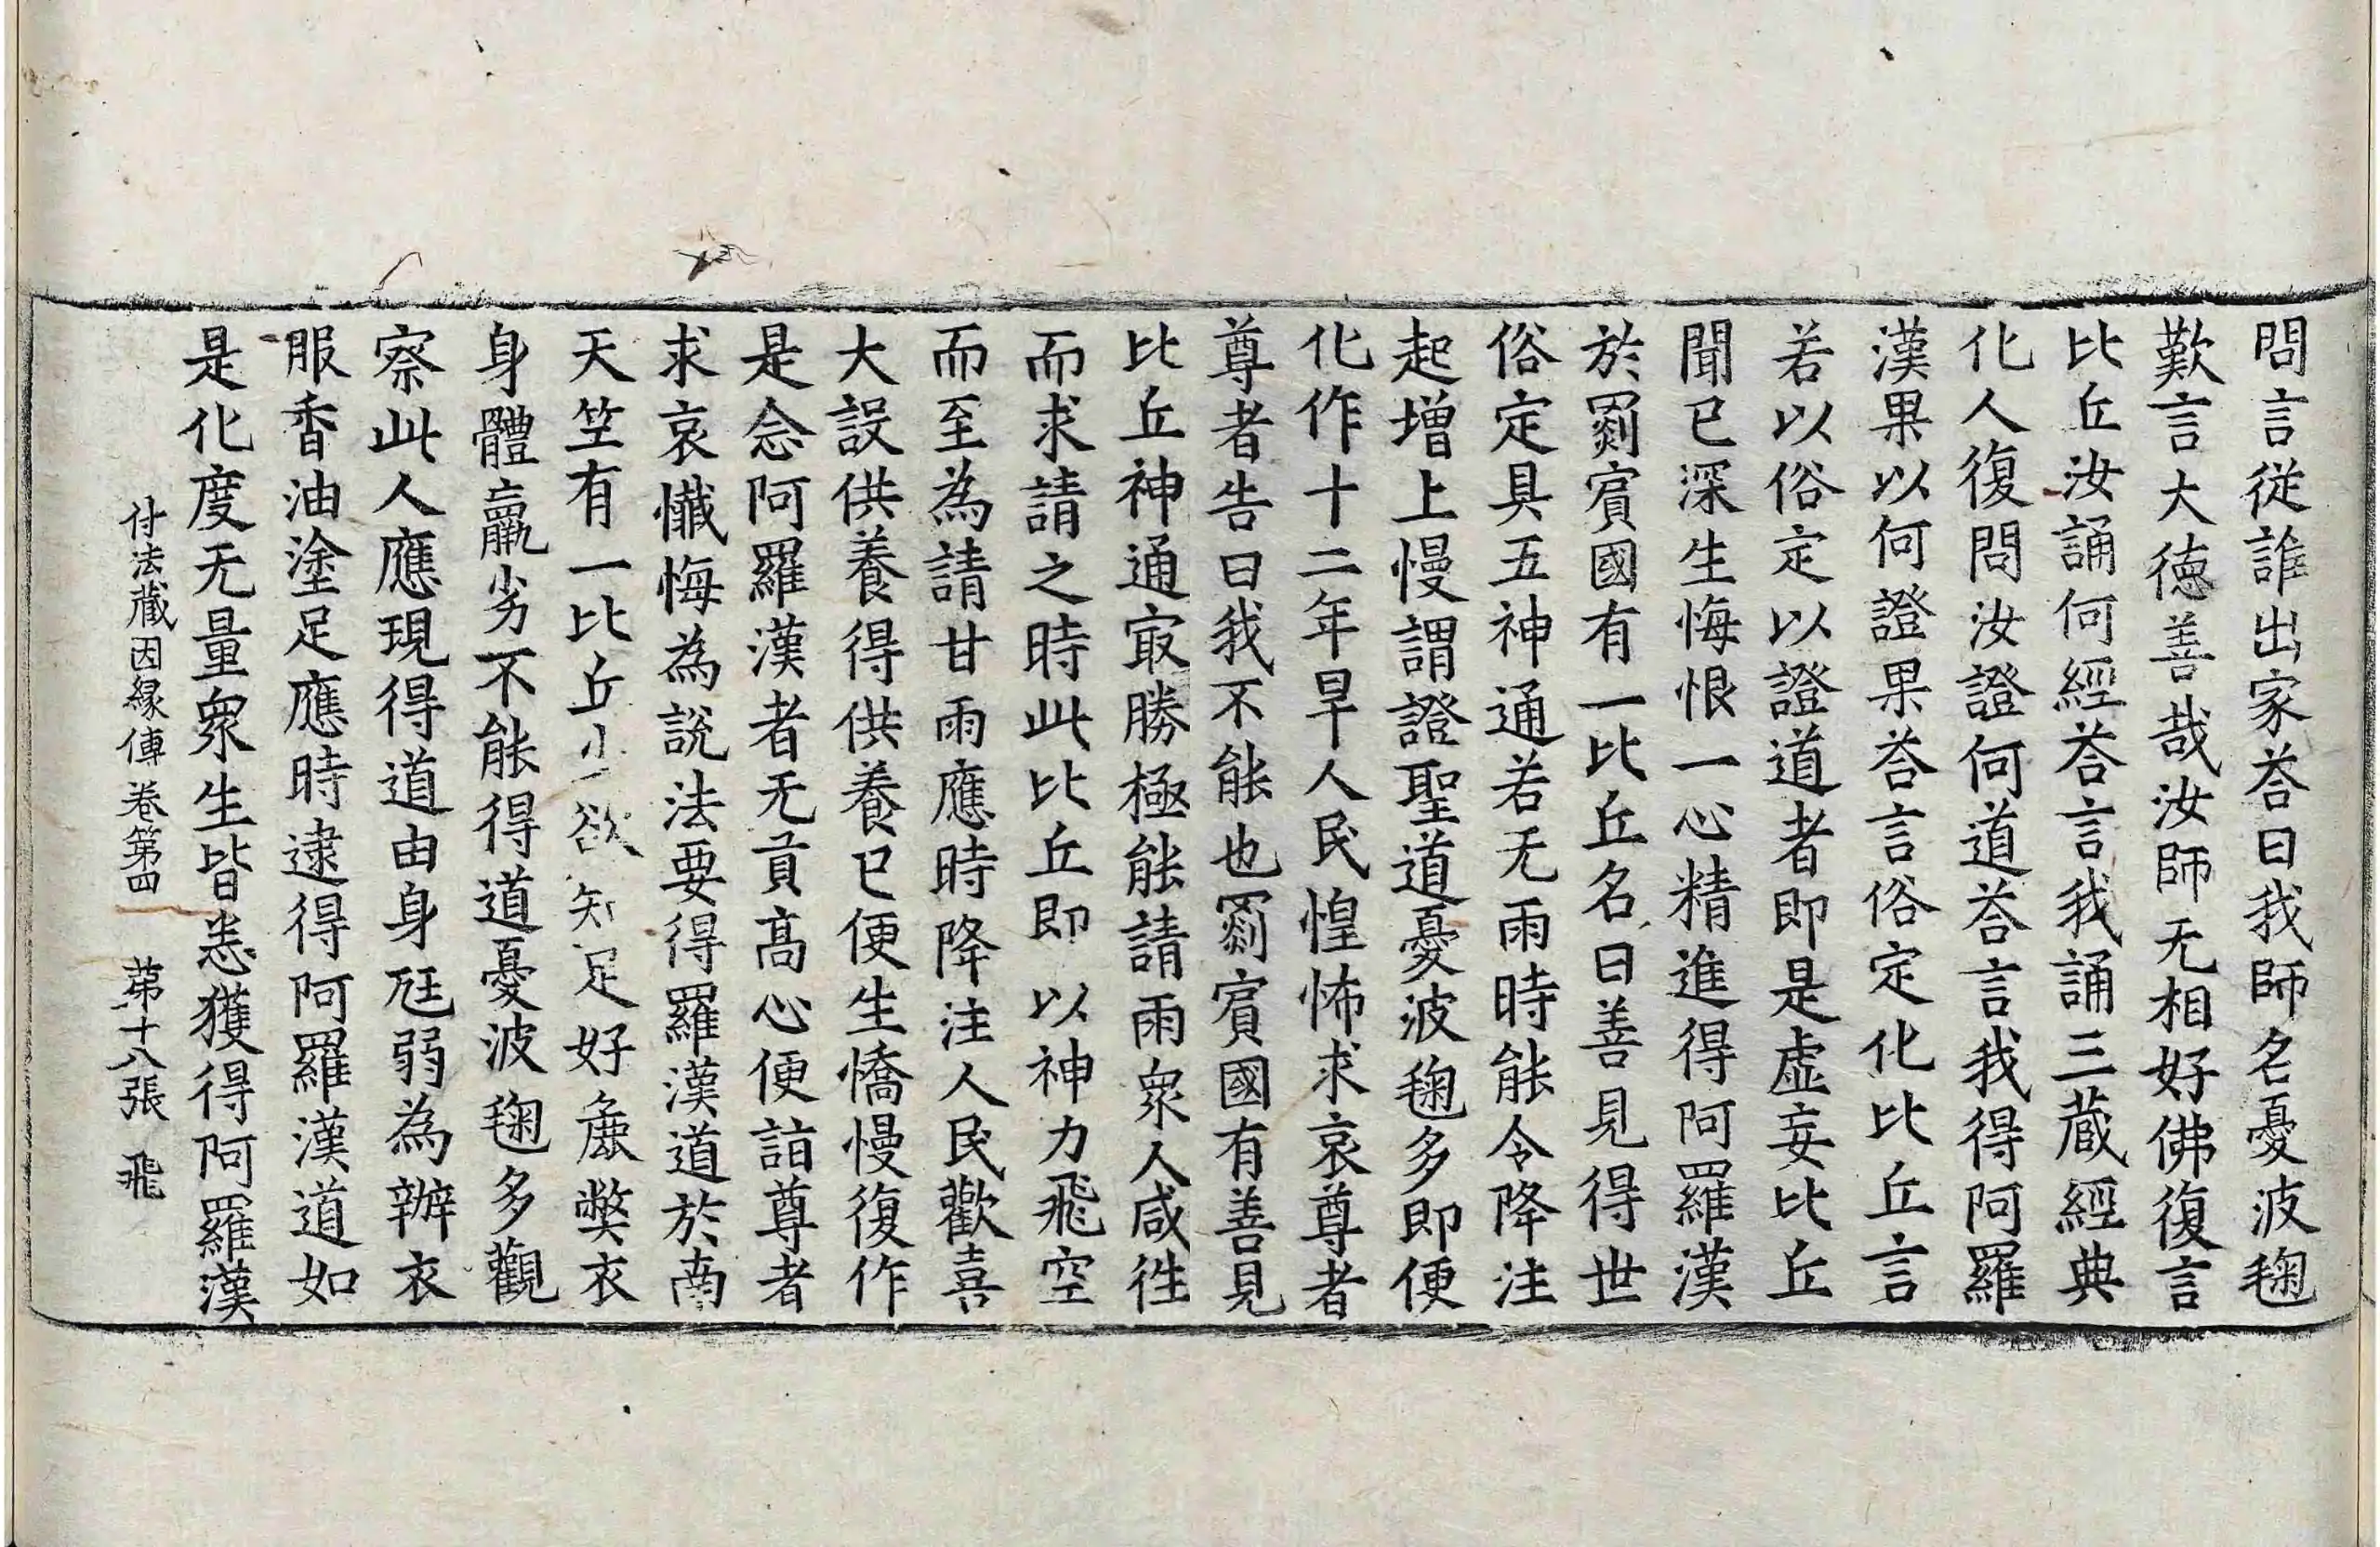 問言從誰出家荅曰我師名憂波毱
歎言大徳善哉汝師无相好佛復言
比丘汝誦何經荅言我誦三蔵經典
化人復問汝證何道荅言我得阿羅
漢果以何證果荅言俗定化比丘言
若以俗定以證道者即是虛妄比丘
聞已深生悔恨一心精進得阿羅漢
於罽賓國有一比丘名曰善見得世
俗定具五神通若无雨時能令降注
起增上慢謂證聖道憂波毱多即便
化作十二年旱人民惶怖求哀尊者
尊者告曰我不能也罽賓國有善見
比丘神通㝡勝極能請雨衆人咸徃
而求請之時此比丘即以神力飛空
而至為請甘雨應時降注人民歡喜
大設供養得供養已便生憍慢復作
是念阿羅漢者无貢髙心便詣尊者
求哀懺悔為說法要得羅漢道於南
天竺有一比丘少欲知足好麁弊衣
身體羸劣不能得道憂波毱多觀
察此人應現得道由身尫弱為辦衣
服香油塗足應時逮得阿羅漢道如
是化度无量衆生皆悉獲得阿羅漢
付法蔵因縁傳卷第四 苐十八張 飛